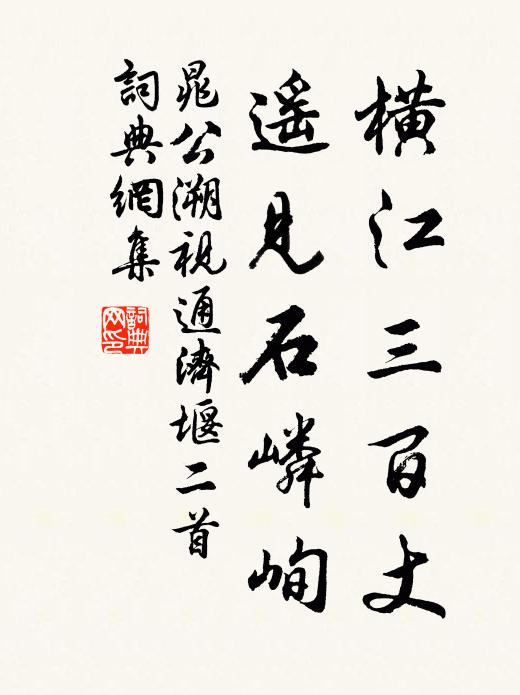 橫江三百丈
遥見石嶙峋
晁公溯視通濟堰二首
詞典網集
詞典网印